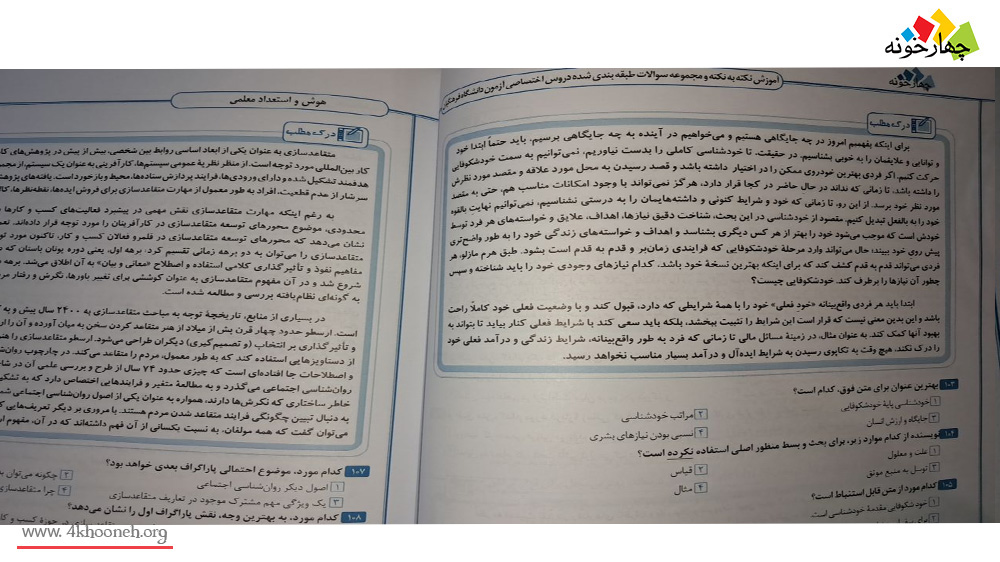 چهارخونه
آموزش نکته به نکته و مجموعه سوالات طبقه بندی شده دروس اختصاصی آزمون دانشگاه فرهنگیان
چهارخونه
درک مطلب
برای اینکه بفهمیم امروز در چه جایگاهی هستیم و می‌خواهیم در آینده به چه جایگاهی برسیم، باید حتماً ابتدا خود
و توانایی و علایقمان را به خوبی بشناسیم. در حقیقت، تا خودشناسی کاملی را بدست نیاوریم، نمی‌توانیم به سمت خودشکوفایی
حرکت کنیم. اگر فردی بهترین خودروی ممکن را در اختیار داشته باشد و قصد رسیدن به محل مورد علاقه و مقصد مورد نظرش
را داشته باشد، تا زمانی که نداند در حال حاضر در کجا قرار دارد، هرگز نمی‌تواند با وجود امکانات مناسب هم، حتی به مقصد
مورد نظر خود برسد. از این رو، تا زمانی که خود و شرایط کنونی و داشته‌هایمان را به درستی نشناسیم، نمی‌توانیم نهایت بالقوه
خود را به بالفعل تبدیل کنیم. مقصود از خودشناسی در این بحث، شناخت دقیق نیازها، اهداف، علایق و خواسته‌های هر فرد توسط
خودش است که موجب می‌شود خود را بهتر از هر کس دیگری بشناسد و اهداف و خواسته‌های زندگی خود را به طور واضح‌تری
پیش روی خود ببیند؛ حال می‌تواند وارد مرحلهٔ خودشکوفایی که فرایندی زمان‌بر و قدم به قدم است بشود. طبق هرم مازلو، هر
فردی می‌تواند قدم به قدم کشف کند که برای اینکه بهترین نسخهٔ خود باشد، کدام نیازهای وجودی خود را باید شناخته و سپس
چطور آن نیازها را برطرف کند. خودشکوفایی چیست؟
ابتدا باید هر فردی واقع‌بینانه «خود فعلی» خود را با همهٔ شرایطی که دارد، قبول کند و با وضعیت فعلی خود کاملاً راحت
باشد و این بدین معنی نیست که قرار است این شرایط را تثبیت ببخشد، بلکه باید سعی کند با شرایط فعلی کنار بیاید تا بتواند به
بهبود آنها کمک کند. به عنوان مثال، در زمینهٔ مسائل مالی تا زمانی که فرد به طور واقع‌بینانه، شرایط زندگی و درآمد فعلی خود
را درک نکند، هیچ وقت به تکاپوی رسیدن به شرایط ایده‌آل و درآمد بسیار مناسب نخواهد رسید.
۱۰۳ بهترین عنوان برای متن فوق، کدام است؟
۱ خودشناسی پایهٔ خودشکوفایی
۲ مراتب خودشناسی
۳ جایگاه و ارزش انسان
۴ نسبی بودن نیازهای بشری
۱۰۴ نویسنده از کدام موارد زیر، برای بحث و بسط منظور اصلی استفاده نکرده است؟
۱ علت و معلول
۲ قیاس
۳ توسل به منبع موثق
۴ مثال
۱۰۵ کدام مورد از متن قابل استنباط است؟
۱ خودشکوفایی مقدمهٔ خودشناسی است.
هوش و استعداد معلمی
درک مطلب
متقاعدسازی به عنوان یکی از ابعاد اساسی روابط بین شخصی، بیش از پیش در پژوهش‌های
کار بین‌المللی مورد توجه است. از منظر نظریهٔ عمومی سیستم‌ها، کارآفرینی به عنوان یک سیستم از
هدفمند تشکیل شده و دارای ورودی‌ها، فرایند پردازش ستاده‌ها، محیط و بازخورد است. یافته‌های
سرشار از عدم قطعیت، افراد به طور معمول از مهارت متقاعدسازی برای فروش ایده‌ها، نقطه‌نظرها،
به رغم اینکه مهارت متقاعدسازی نقش مهمی در پیشبرد فعالیت‌های کسب و کارها
محدودی، موضوع محورهای توسعه متقاعدسازی در کارآفرینان را مورد توجه قرار داده‌اند.
نشان می‌دهد که محورهای توسعه متقاعدسازی در قلمرو فعالان کسب و کار، تاکنون مورد
متقاعدسازی را می‌توان به دو برهه زمانی تقسیم کرد. برهه اول، یعنی دوره یونان باستان که
مفاهیم نفوذ و تأثیرگذاری کلامی استفاده و اصطلاح «معانی و بیان» به آن اطلاق می‌شد. برهه
شروع شد و در آن مفهوم متقاعدسازی به عنوان کوششی برای تغییر باورها، نگرش و رفتار
به گونه‌ای نظام‌یافته بررسی و مطالعه شده است.
در بسیاری از منابع، تاریخچهٔ توجه به مباحث متقاعدسازی به ۲۴۰۰ سال پیش و به
است. ارسطو حدود چهار قرن پیش از میلاد از هنر متقاعد کردن سخن به میان آورده و آن را
و تأثیرگذاری بر انتخاب (و تصمیم‌گیری) دیگران طراحی می‌شود. ارسطو متقاعدسازی را
از دستاویزهایی استفاده کند که به طور معمول، مردم را متقاعد می‌کند. در چارچوب
و اصطلاحات جا افتاده‌ای است که چیزی حدود ۷۴ سال از طرح و بررسی علمی آن در
روان‌شناسی اجتماعی می‌گذرد و به مطالعهٔ متغیر و فرایندهایی اختصاص دارد که به
خاطر ساختاری که نگرش‌ها دارند، همواره به عنوان یکی از اصول روان‌شناسی اجتماعی
به دنبال تبیین چگونگی فرایند متقاعد شدن مردم هستند. با مروری بر دیگر تعریف‌هایی
می‌توان گفت که همه مولفان، به نسبت یکسانی از آن فهم داشته‌اند که در آن، مفهوم
۱۰۷ کدام مورد، موضوع احتمالی پاراگراف بعدی خواهد بود؟
۱ اصول دیگر روان‌شناسی اجتماعی
۲ چگونه می‌توان
۳ یک ویژگی مهم مشترک موجود در تعاریف متقاعدسازی
۴ چرا متقاعدسازی
۱۰۸ کدام مورد، به بهترین وجه، نقش پاراگراف اول را نشان می‌دهد؟
www. 4khooneh.org